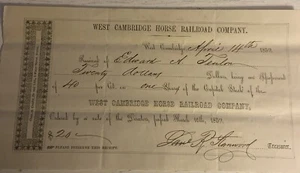 WEST CAMBRIDGE HORSE RAILROAD COMPANY.
West Cambridge, April 14th 1859.
Received of Edward A.
Twenty dollars Dollars, being an Assessment
of 40 per Ct. on one Share of the Capital Stock of the
WEST CAMBRIDGE HORSE RAILROAD COMPANY,
Ordered by a vote of the Directors, passed March 1859.
$20 Treasurer.